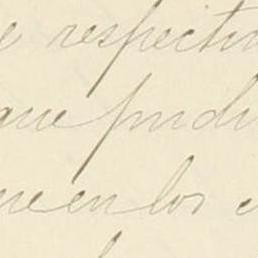 e respectiv
que pudi
ue en los e